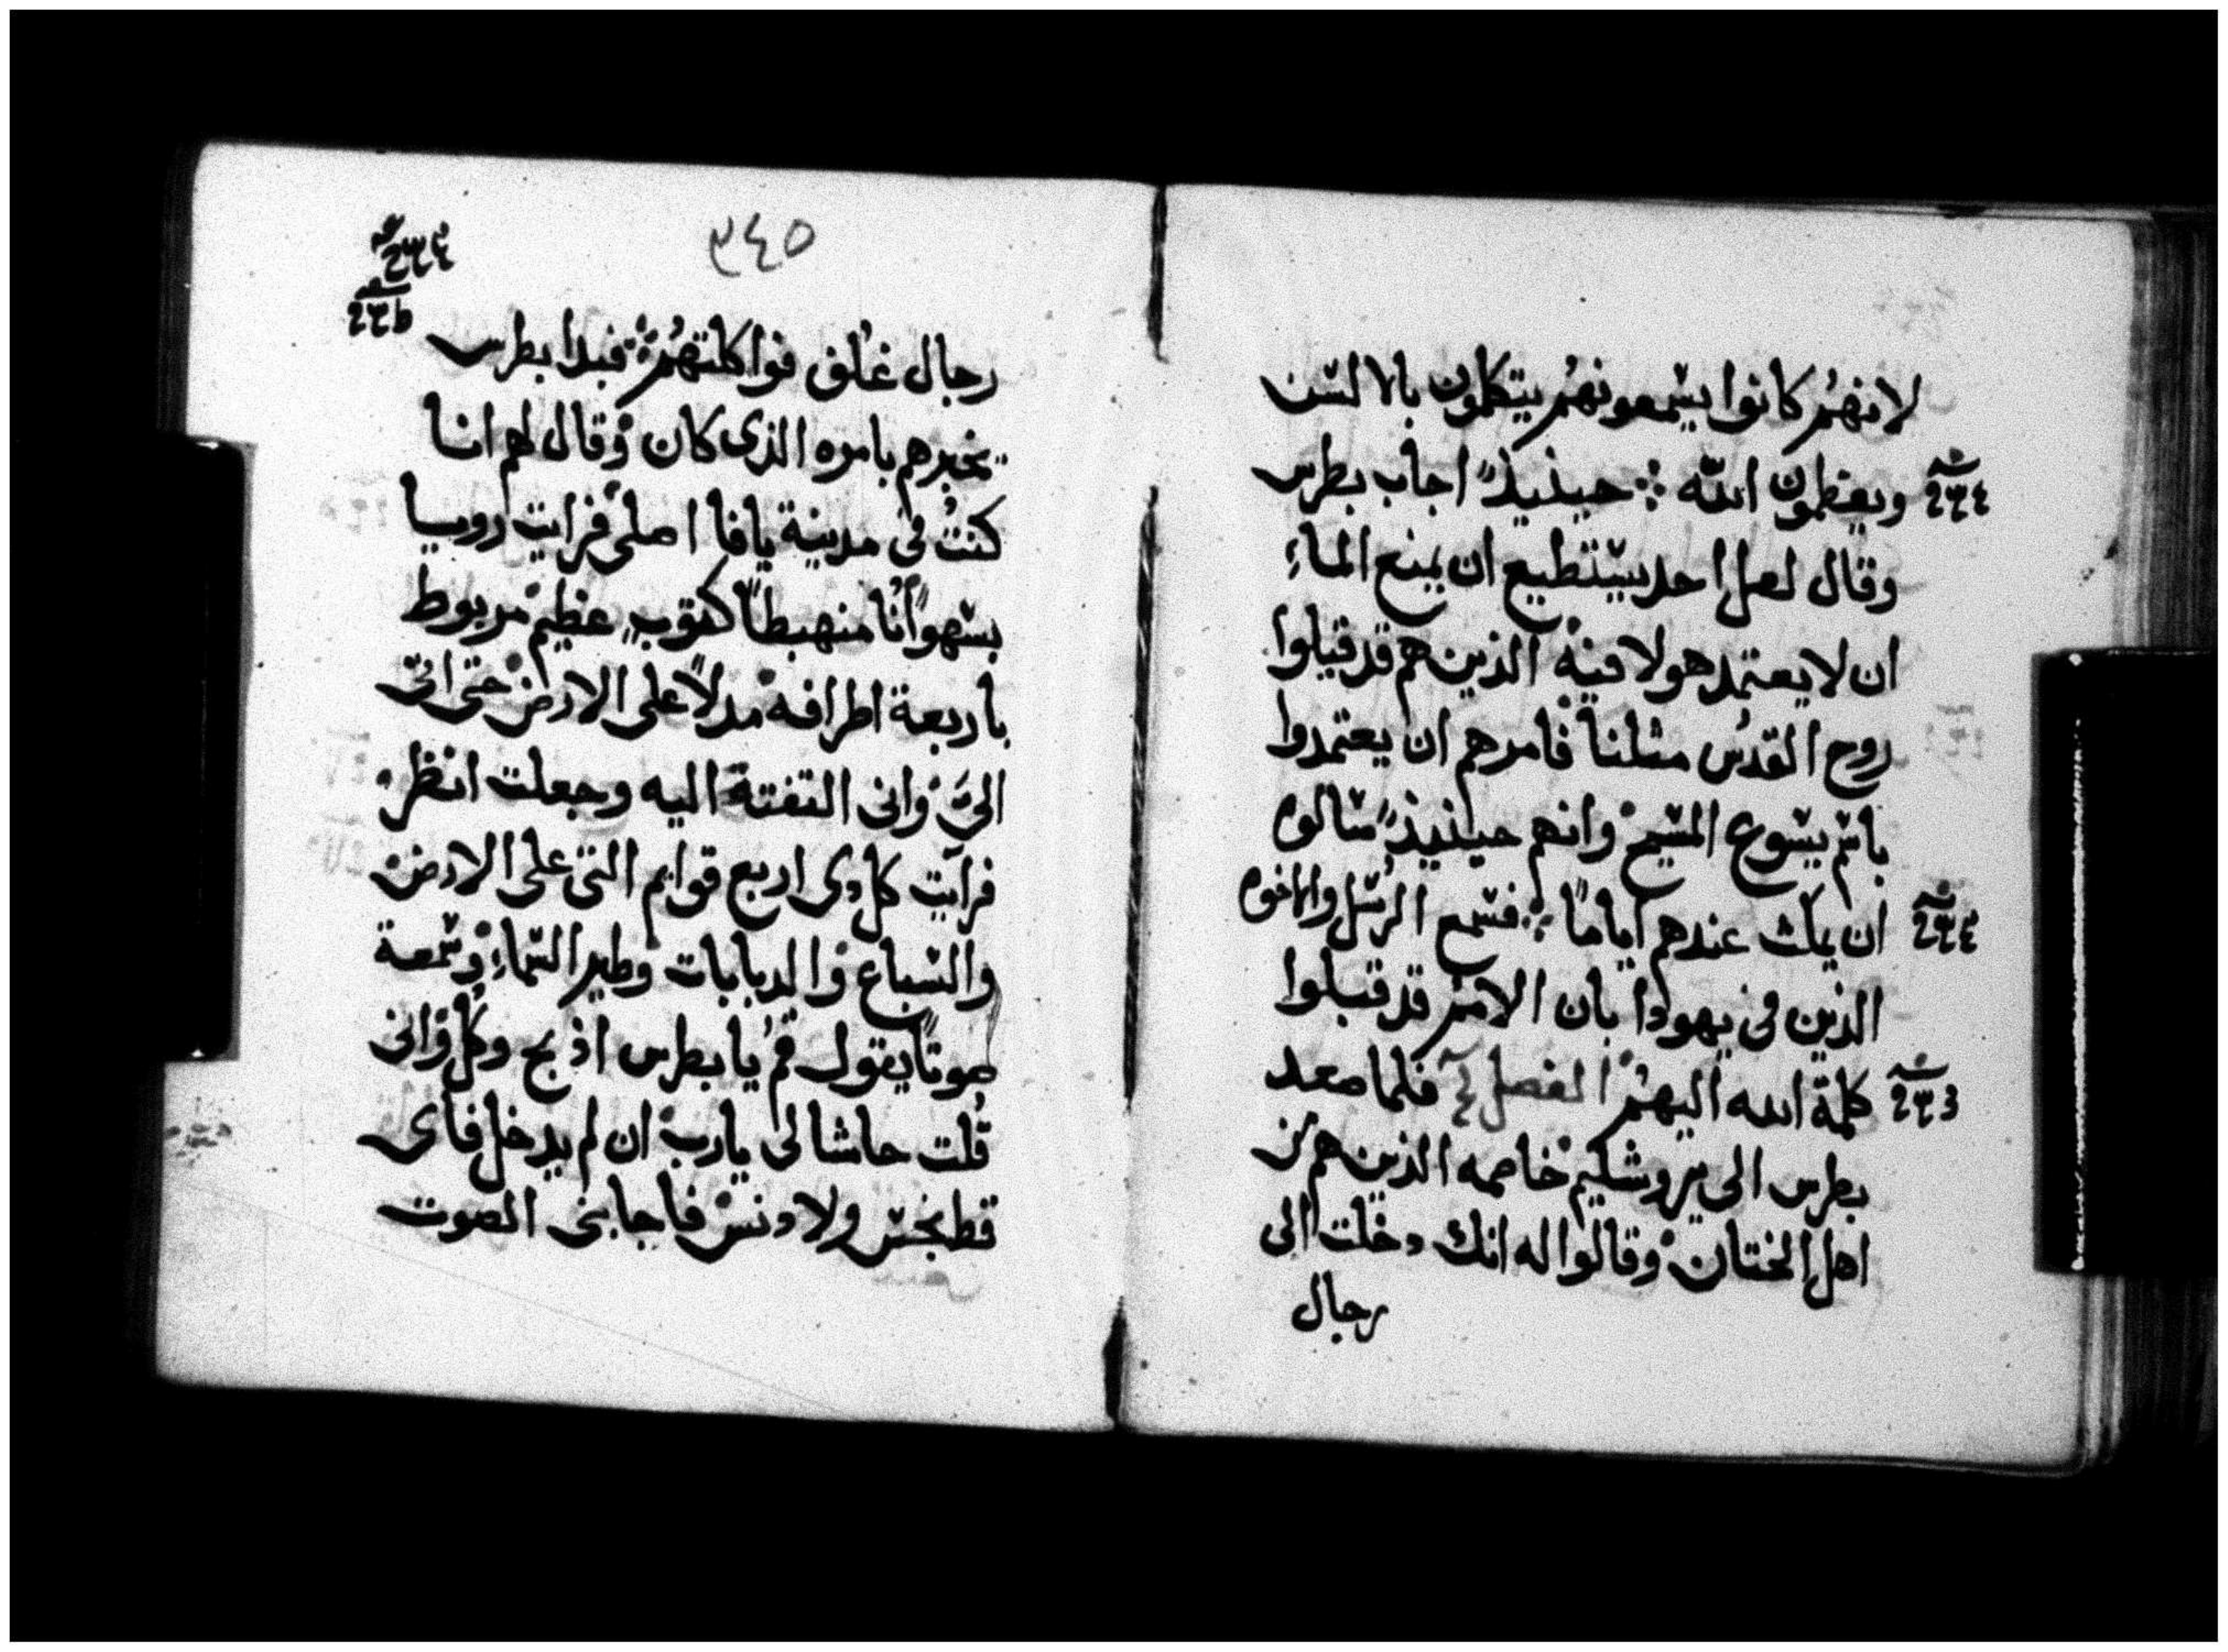 لانهُم كانوا يسمعونهُم يتكلمون بالالسن
ويعظمون الله ⁘ حينيذٍ اجاب بطرس
وقال لعل احد يستطيع ان يمنع الماءِ
ان لا يعتمد هولا فيهْ الذين هم قد قبلوا
روح القدُس مثلنا فامرهم ان يعتمدوا
باسم يسوع المسيح وانهم حينيذٍ سالوه
ان يمكث عندهم اياماً ⁘ فسمع الرُسل والاخوه
الذين فى يهودا بان الامم قد قبلوا
كلمة الله اليهُم الفصل فلما صعد
بطرس الى يروشليم خاصمه الذين هم من
اهل الختان وقالوا له انك دخلت الى
رجال
٣٤٥
رجال غُلف فواكلتهُم ⁘ فبدا بطرس
يخبرهم بامره الذى كان وقال لهم انا
كنتُ فى مدينة يافا اصلى فرايت روسيا
بسهواً انا منهبطاً كثوبٍ عظيم مربوط
باربعة اطرافه مدلاً على الارض حتى اتى
الىَّ وانى التفتة اليه وجعلت انظر
فرايت كل دى اربع قوايم التى على الارض
والسباع والدبابات وطير السماءِ وسمعة
صوتاً يقول قمُ يا بطرس اذبح وكل وانى
قُلت حاشا لى يا رب ان لم يدخل فاى
قط نجس ولا دنس فاجابنى الصوت